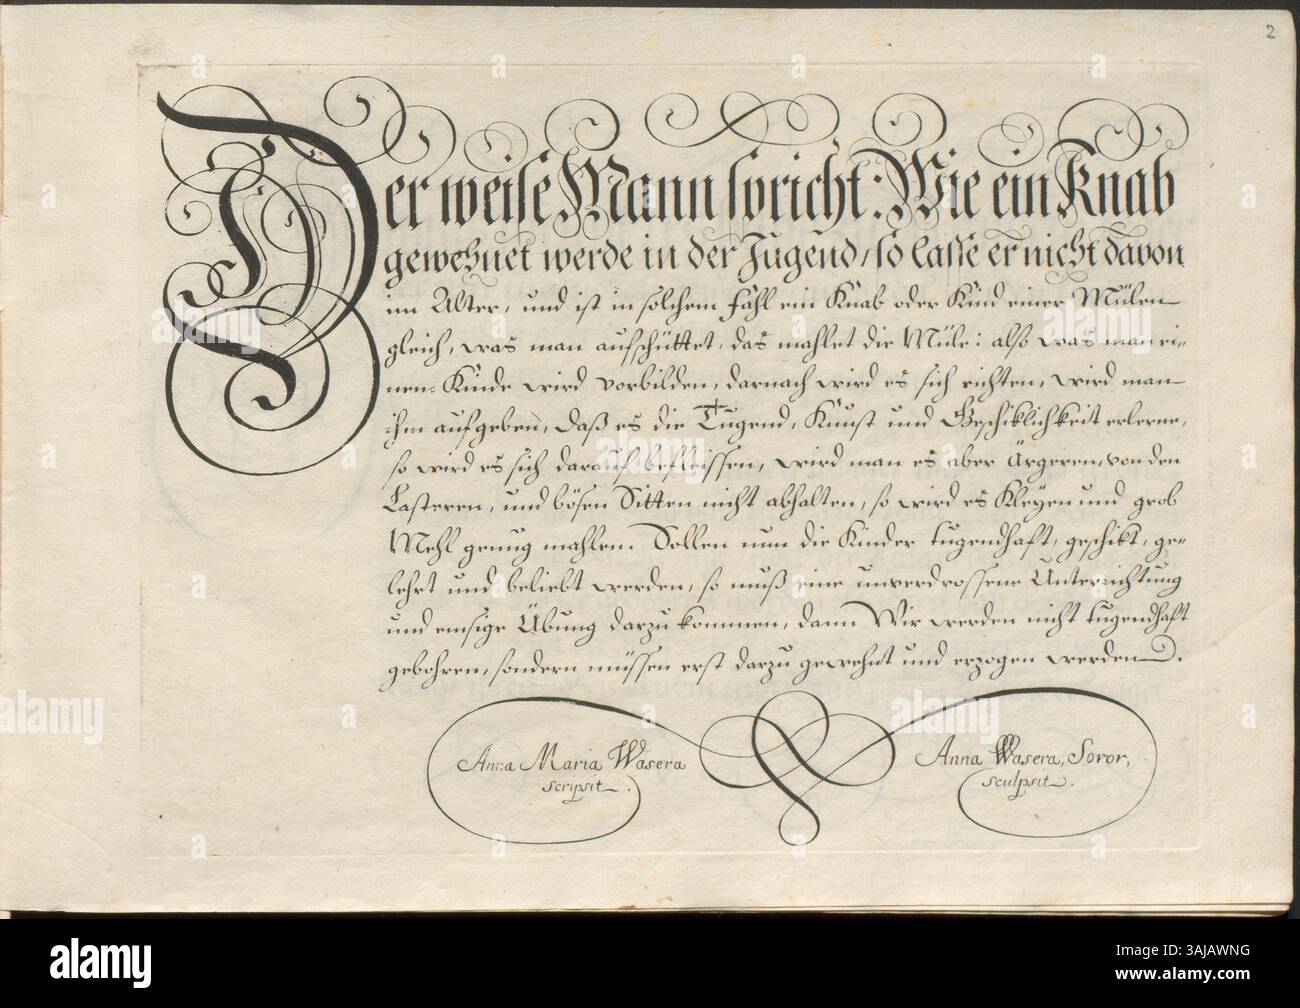 2
Der weise Mann spricht: Wie ein Knab
gewehnet werde in der Jugend, so lasse er nicht davon
im Alter, und ist in solchem fähl ein Knab oder Kind einer Mülen
gleich, was man aufschüttet, das mahlet die Müle: also was man ei-
nem Kinde wird vorbilden, darnach wird es sich richten, wird man
ihm aufgeben, daß es die Tugend, Kunst und Geschiklichkeit erlerne,
so wird es sich darauf befleissen, wird man es aber Ärgeren, von den
Lasteren, und bösen Sitten nicht abhalten, so wird es Kleyen und grob
Mehl genug mahlen. Sollen nun die Kinder tugendhaft, geschikt, ge-
lehrt und beliebt werden, so muß eine unverdrossene Unterrichtung
und emsige Übung darzu kommen, dann Wir werden nicht tugendhaft
gebohren, sondern müssen erst darzu gewehnt und erzogen werden.
Anna Maria Wasera
scripsit.
Anna Wasera, Soror,
sculpsit.
alamy
Image ID: 3AJAWNG
www.alamy.com